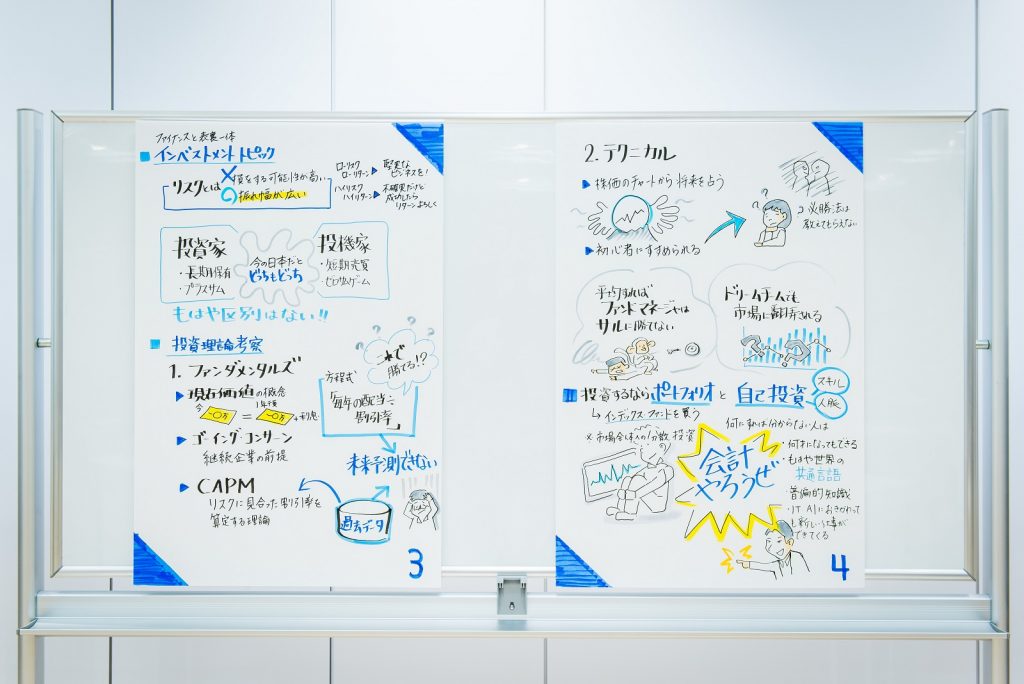 ファイナンスと表裏一体
インベストメントトピック
リスクとは
損をする可能性が高い
振れ幅が広い
ローリスク
ローリターン
堅実な
ビジネスを!
ハイリスク
ハイリターン
不確実だけど
成功したら
リターンよろしく
投資家
・長期保有
・プラスサム
今の日本だと
どっちもどっち
投機家
・短期売買
・ゼロサムゲーム
もはや区別はない!!
投資理論考察
1. ファンダメンタルズ
現在価値の概念
今
1年後
一〇万 = 一〇万 +利息
ゴーイング・コンサーン
継続企業の前提
CAPM
リスクに見合った割引率を
算定する理論
これで
勝てる!?
方程式
「毎年の配当÷
割引率」
未来予測できない
過去データ
3
2. テクニカル
株価のチャートから将来を占う
初心者にすすめられる
必勝法は
教えてもらえない
平均すれば
ファンドマネージャは
サルに勝てない
ドリームチームでも
市場に翻弄される
投資するならポートフォリオと自己投資
スキル
人脈
インデックスファンドを買う
×市場全体への分散投資
何にすれば分からない人は
会計
やろうぜ
・何才になってもできる
・もはや世界の
共通言語
・普遍的知識
・IT AIにおきかわって
も新しい仕事が
できてくる
4